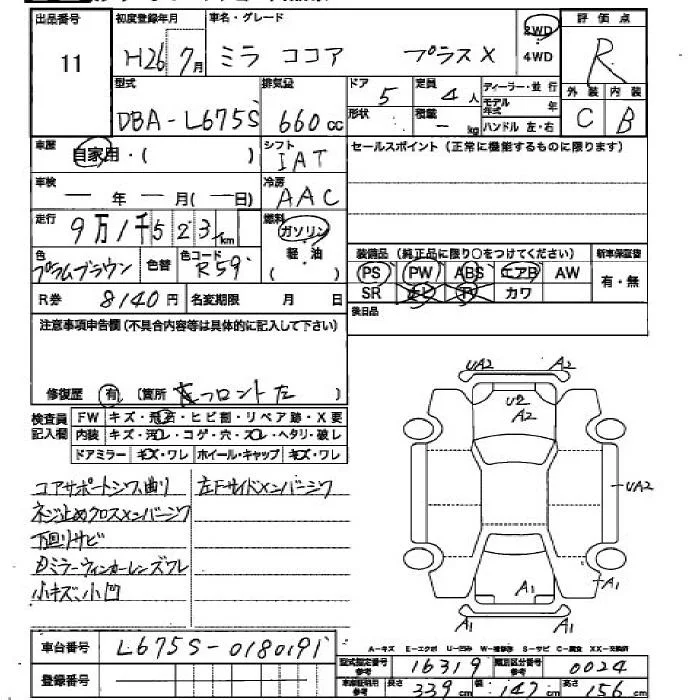 出品番号 初度登録年月 車名・グレード 評価点
11 H26年7月 ミラ ココア プラスX 2WD 4WD R
型式 排気量 ドア 定員 ディーラー・並行 外装 内装
DBA-L675S 660cc 5 4人 モデル年式 年 C B
形状 積載 - kg ハンドル 左・右
車歴 自家用・( ) シフト IAT セールスポイント (正常に機能するものに限ります)
車検 ― 年 ― 月(―日) 冷房 AAC
走行 9万1千523km 燃料 ガソリン 軽・油 ( )
色 プラムブラウン 色替 色コード R59
装備品 (純正品に限り○をつけてください) 新車保証書
PS PW ABS エアB AW 有・無
SR ナビ TV カワ
R券 8140円 名変期限 月 日
後日品
注意事項申告欄(不具合内容等は具体的に記入して下さい)
修復歴 有 (箇所 フロント左 )
検査員記入欄 FW キズ・飛石・ヒビ割・リペア跡・X要
内装 キズ・汚レ・コゲ・穴・スレ・ヘタリ・破レ
ドアミラー キズ・ワレ ホイール・キャップ キズ・ワレ
コアサポートシワ曲り
ネジ止めクロスメンバーシワ
下回リサビ
ミラーウィンカーレンズワレ
小キズ、小凹
左Fサイドメンバーシワ
UA2 A2
U2
A2
UA2
A1 A1
A1 A1
車台番号 L675S-0180191
登録番号
A-キズ E-エクボ U-凹ミ W-補修跡 S-サビ C-腐食 XX-交換済
型式指定番号 参考 16319 類別区分番号 参考 0024
車庫証明用 参考 長さ 339cm 幅 147cm 高さ 156cm